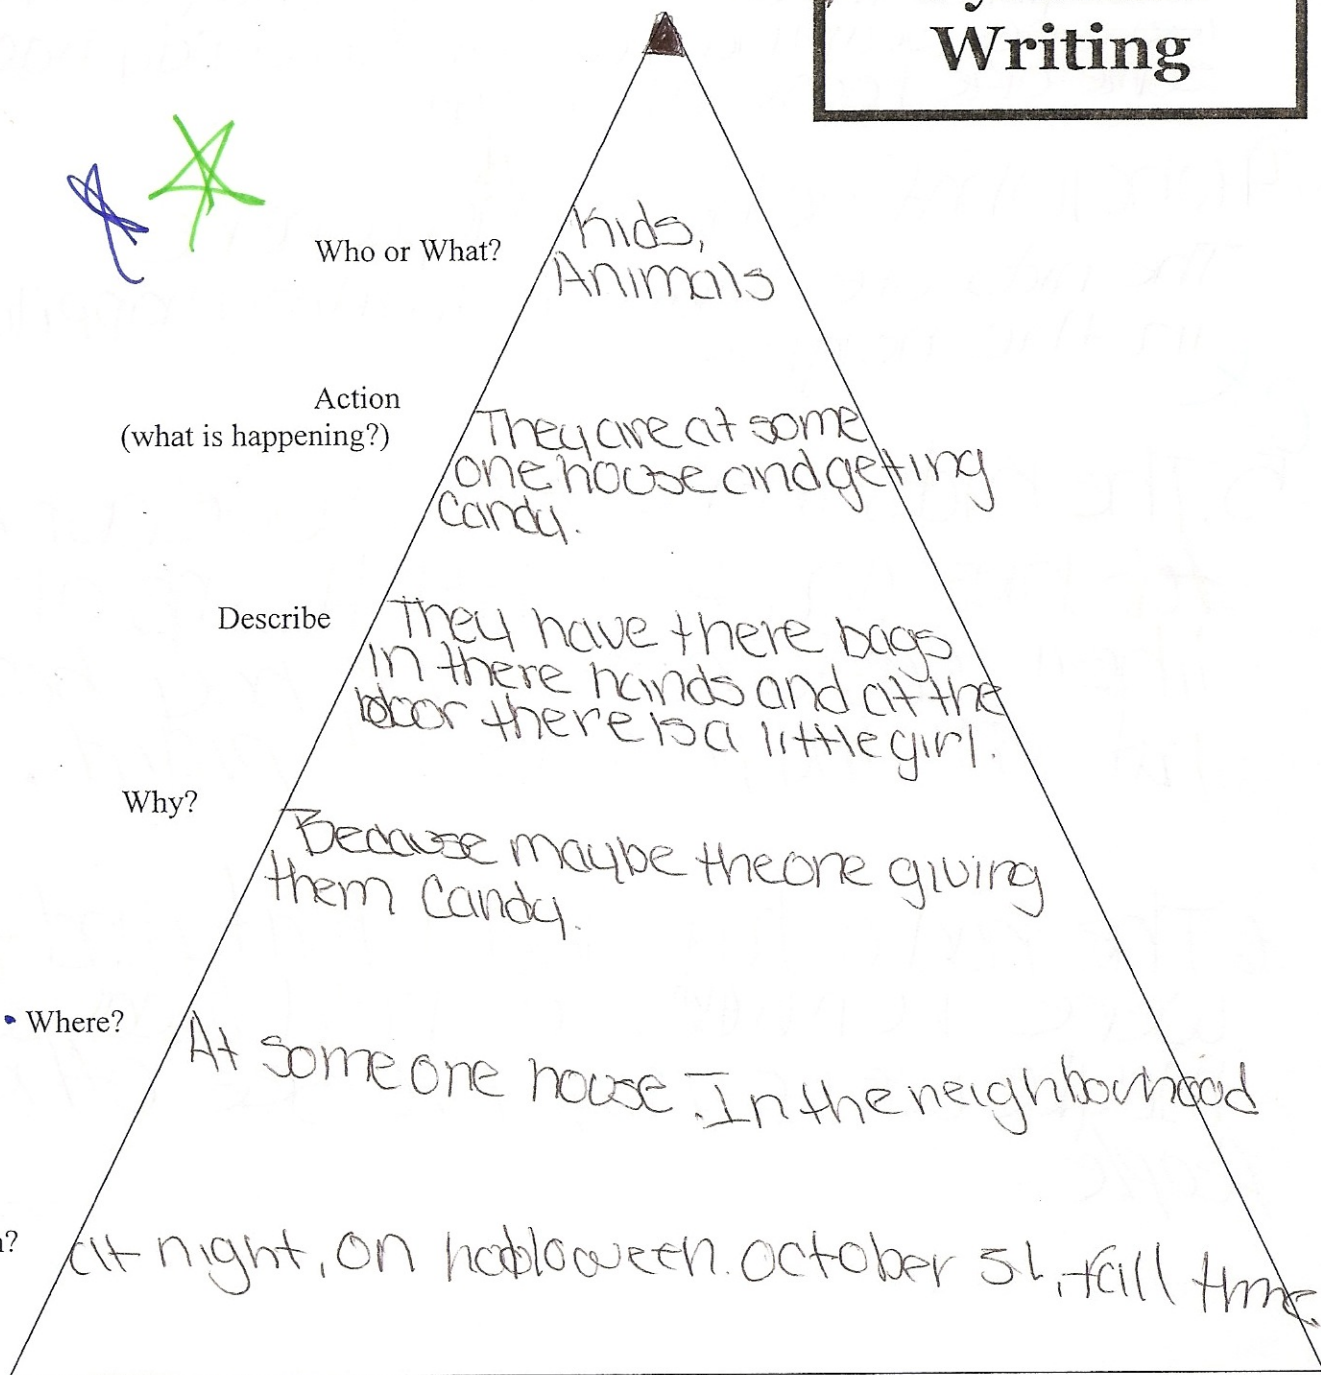 Writing
Who or What?
Kids,
Animals
Action
(what is happening?)
They are at some
one house and geting
Candy.
Describe
They have there bags
in there hands and at the
door there is a little girl.
Why?
Because maybe the one giving
them Candy.
Where?
At someone house. In the neighborhood
?
at night, on halloween. October 31, fall time